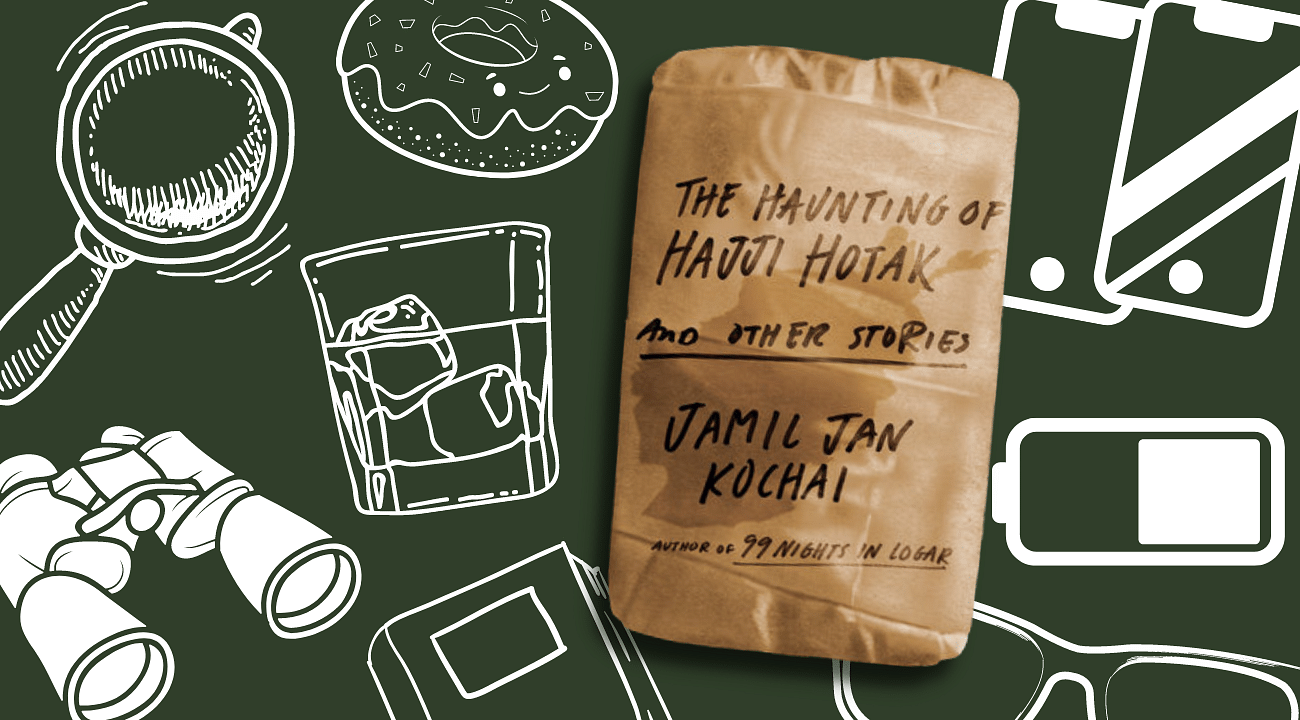 THE HAUNTING OF
HAJJI HOTAK
AND OTHER STORIES
JAMIL JAN
KOCHAI
AUTHOR OF 99 NIGHTS IN LOGAR